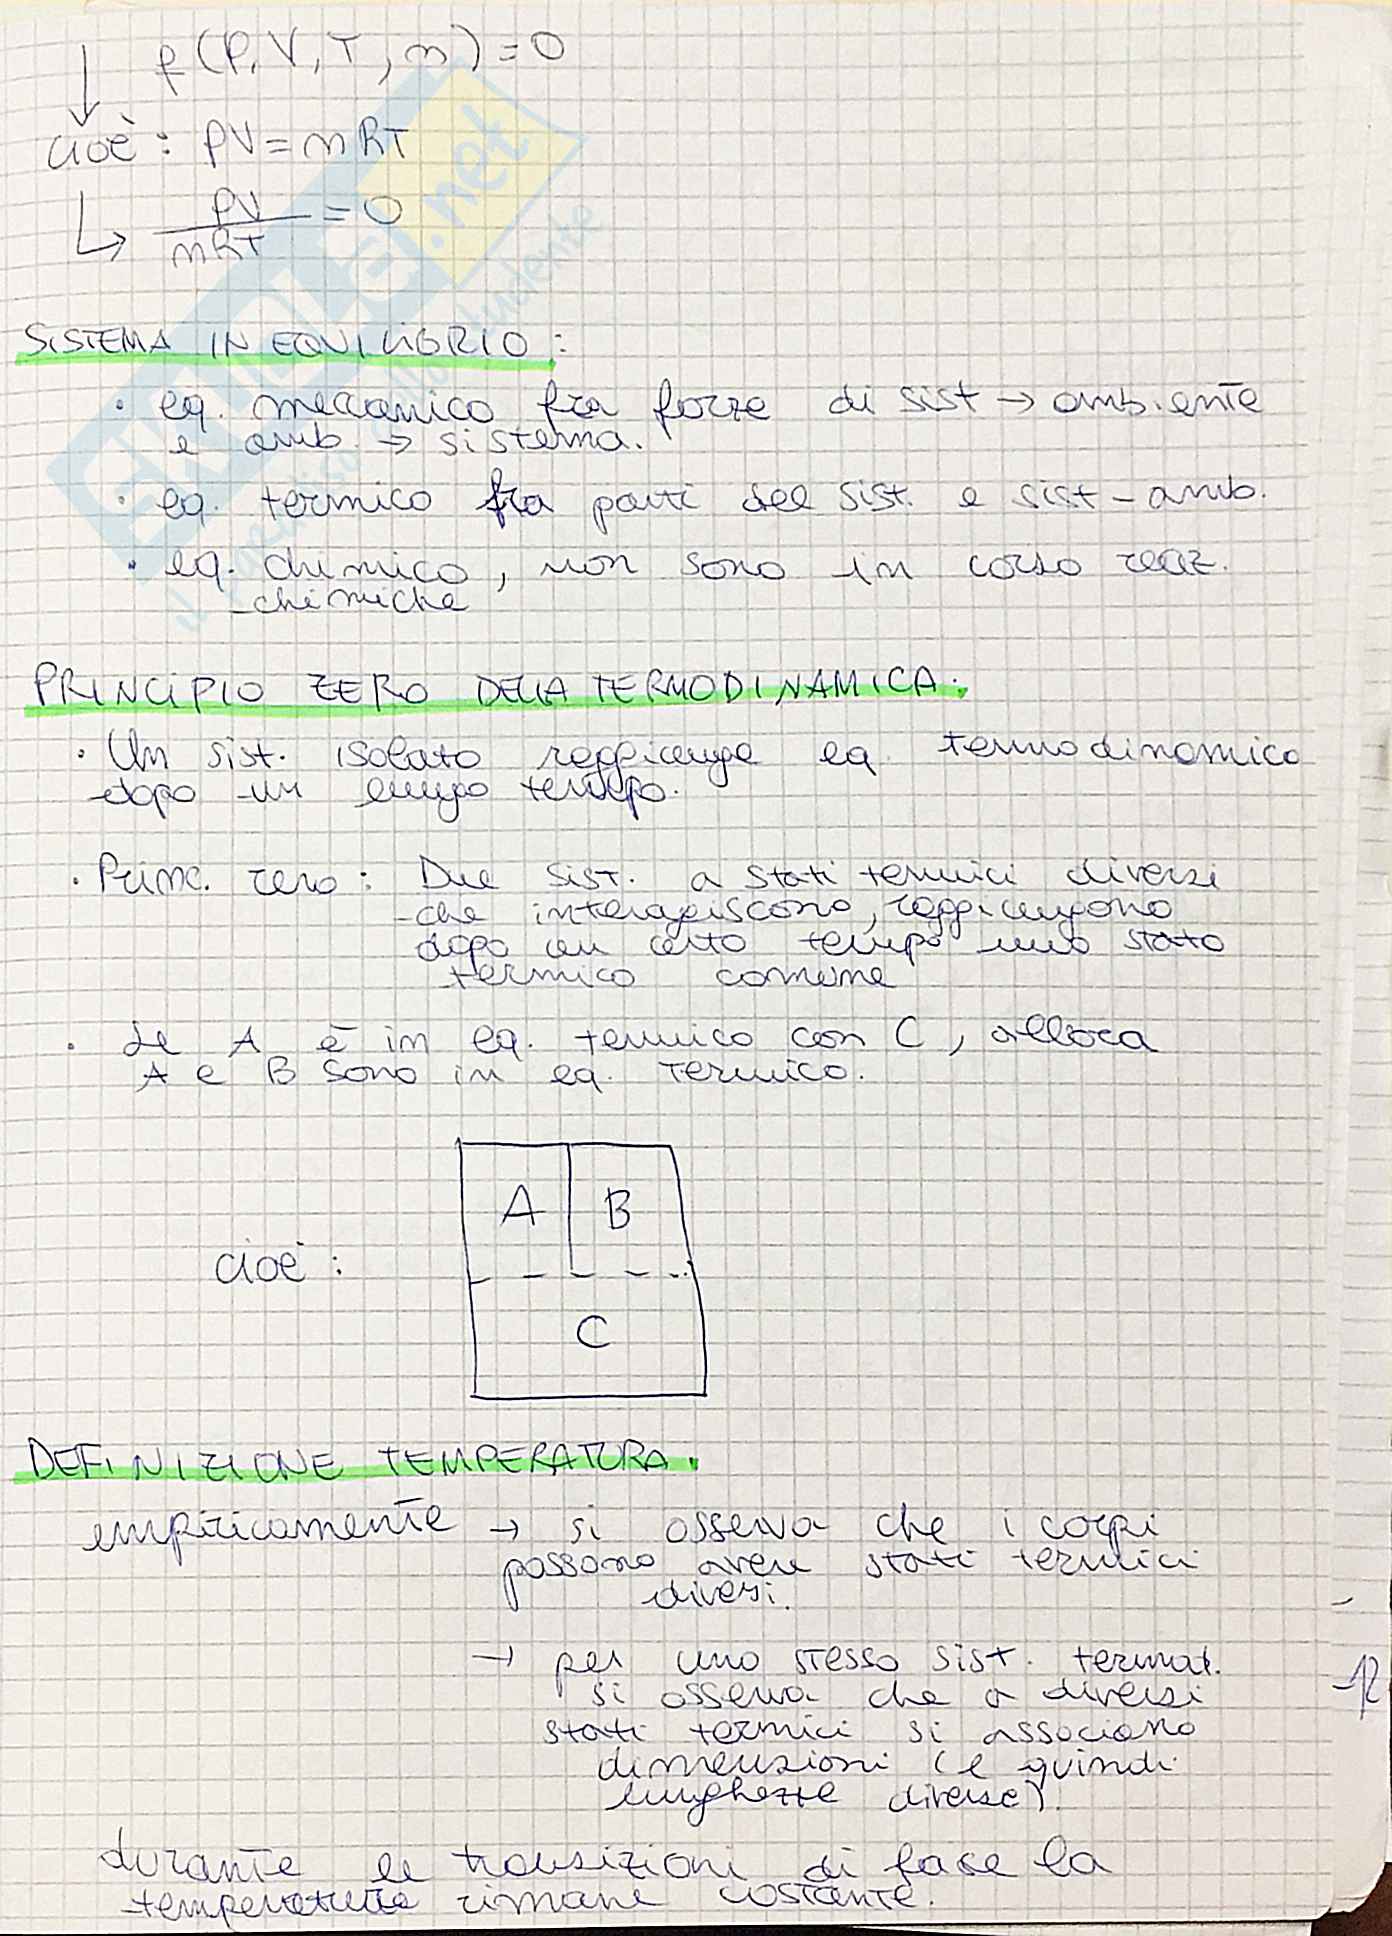 f(P, V, T, n) = 0
cioè: PV = nRT
PV
nRT = 0
SISTEMA IN EQUILIBRIO:
· eq. meccanico fra forze di sist → ambiente
e amb. → sistema.
· eq. termico fra parti del sist. e sist-amb.
· eq. chimico, non sono in corso reaz.
chimiche
PRINCIPIO ZERO DELLA TERMODINAMICA.
· Un sist. isolato raggiunge eq. termodinamico
dopo un lungo tempo.
· Princ. zero: Due sist. a stati termici diversi
che interagiscono, raggiungono
dopo un certo tempo uno stato
termico comune
· Se A è in eq. termico con C, allora
A e B sono in eq. termico.
A B
cioè:
C
DEFINIZIONE TEMPERATURA.
empiricamente → si osserva che i corpi
possono avere stati termici
diversi.
→ per uno stesso sist. termod.
si osserva che a diversi
stati termici si associano
dimensioni (e quindi
lunghezze diverse).
durante le transizioni di fase la
temperatura rimane costante.
SKUOLA.net
il paradiso dello studente